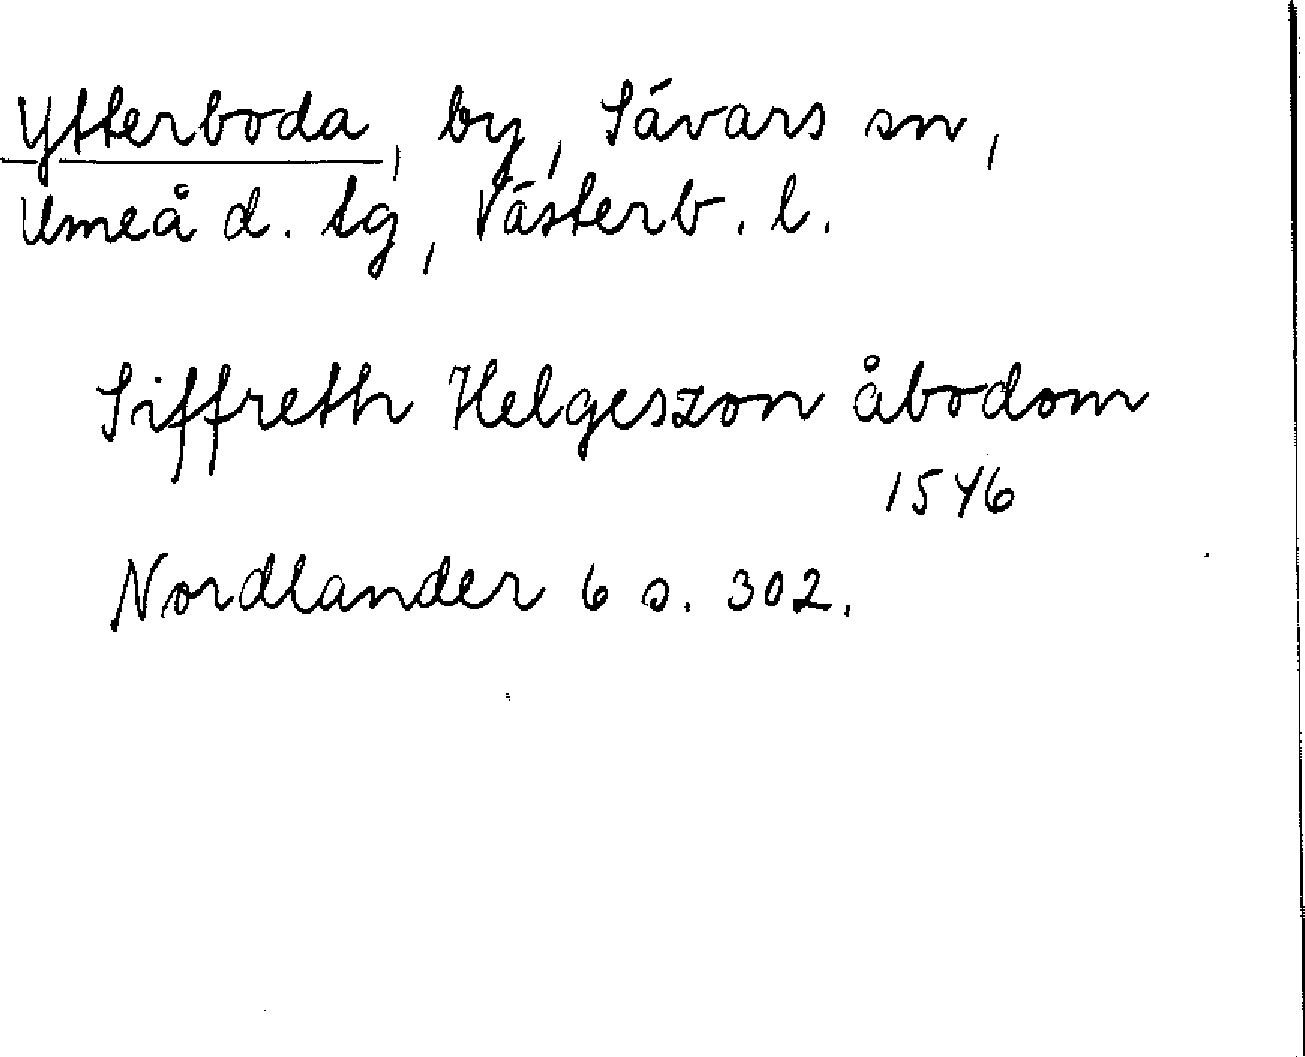 Ytterboda, by, Sävars sn,
Umeå d. tg, Västerb. l.
Siffreth Helgeszon åbodom
1546
Nordlander 6 s. 302.